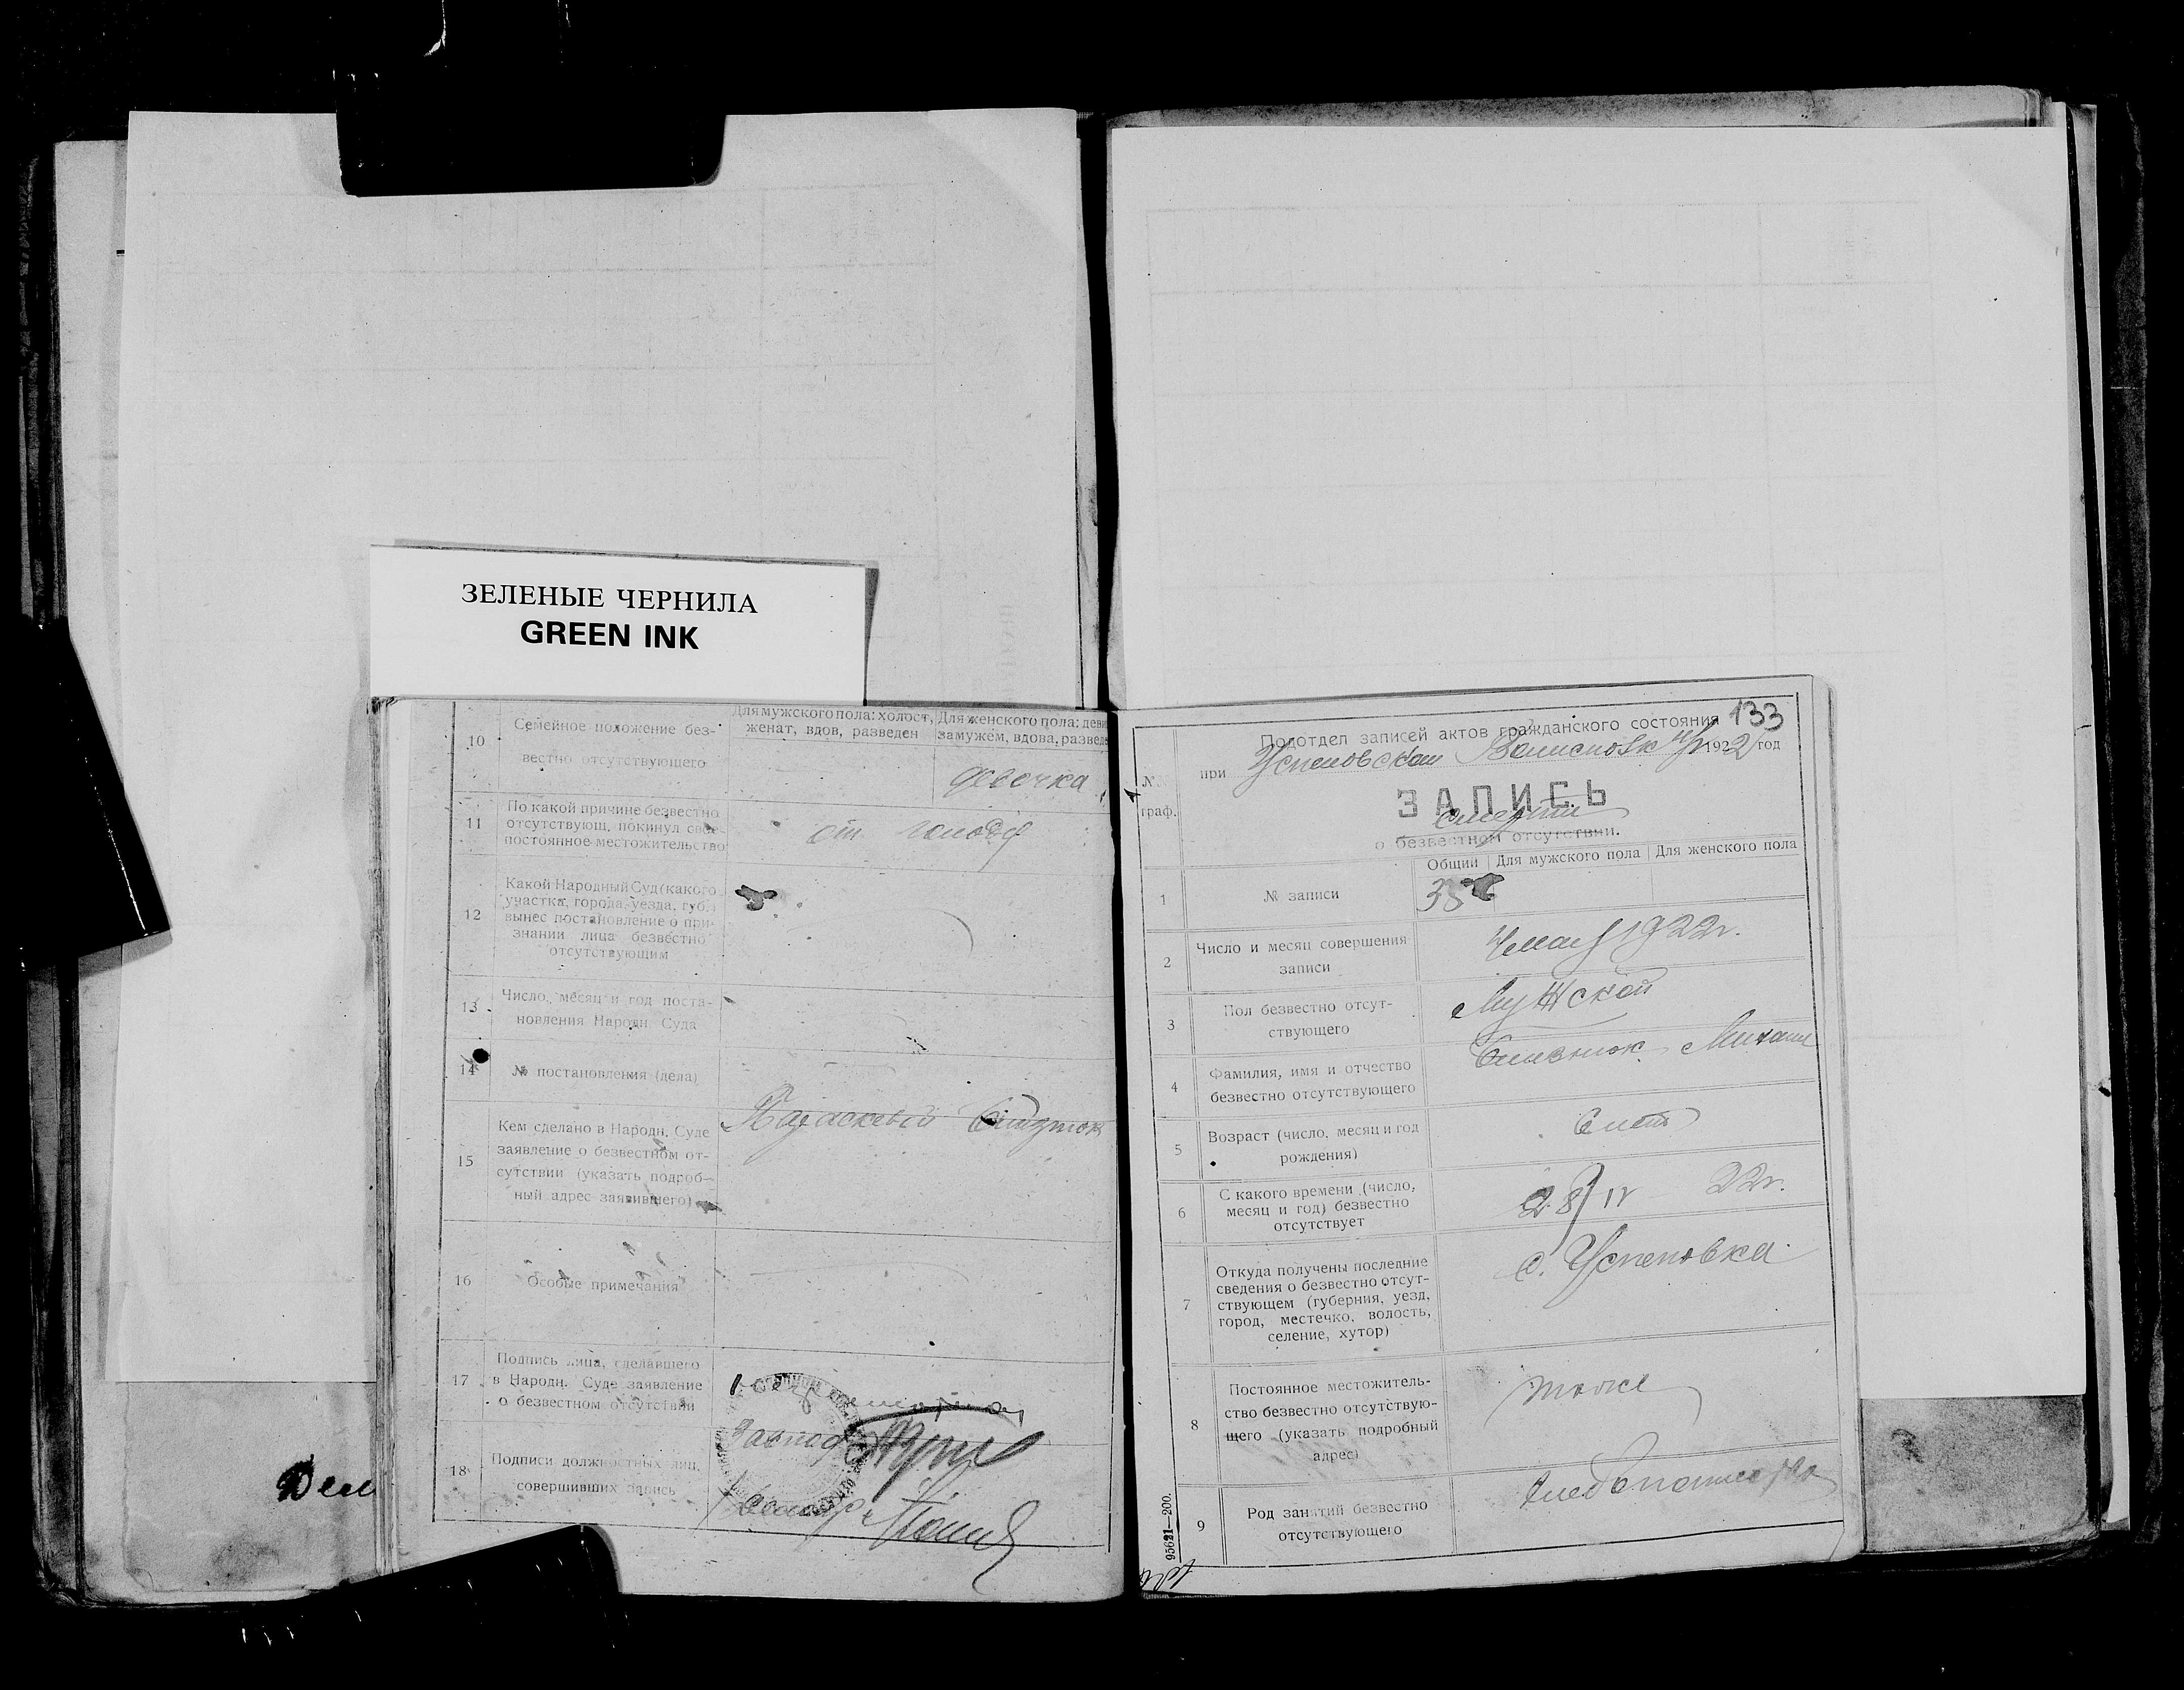 ЗЕЛЕНЫЕ ЧЕРНИЛА
GREEN INK
10
Семейное положение без-
вестно отсутствующего
Для мужского пола: холост,
женат, вдов, разведен
Для женского пола: деви
замужем, вдова, разведе
девочка
11
По какой причине безвестно
отсутствующ. покинул свое
постоянное местожительство
от голода
12
Какой Народный Суд (какого
участка, города, уезда, губ.)
вынес постановление о при-
знании лица безвестно
отсутствующим
13
Число, месяц и год поста-
новления Народн. Суда
14
№ постановления (дела)
15
Кем сделано в Народн. Суде
заявление о безвестном от-
сутствии (указать подроб-
ный адрес заявившего)
16
Особые примечания
17
Подпись лица, сделавшего
в Народн. Суде заявление
о безвестном отсутствии
18
Подписи должностных лиц,
совершивших запись
133
Подотдел записей актов гражданского состояния
при Успеновском 1922 год
№№
граф.
ЗАПИСЬ
смерти
о безвестном отсутствии.
Общий
Для мужского пола
Для женского пола
1
№ записи
2
Число и месяц совершения
записи
4 мая 1922г.
3
Пол безвестно отсут-
ствующего
Мужской
4
Фамилия, имя и отчество
безвестно отсутствующего
Михаил
5
Возраст (число, месяц и год
рождения)
6 лет
6
С какого времени (число,
месяц и год) безвестно
отсутствует
28/IV 22г.
7
Откуда получены последние
сведения о безвестно отсут-
ствующем (губерния, уезд,
город, местечко, волость,
селение, хутор)
с. Успеновка
8
Постоянное местожитель-
ство безвестно отсутствую-
щего (указать подробный
адрес)
тоже
9
Род занятий безвестно
отсутствующего
95621—200.